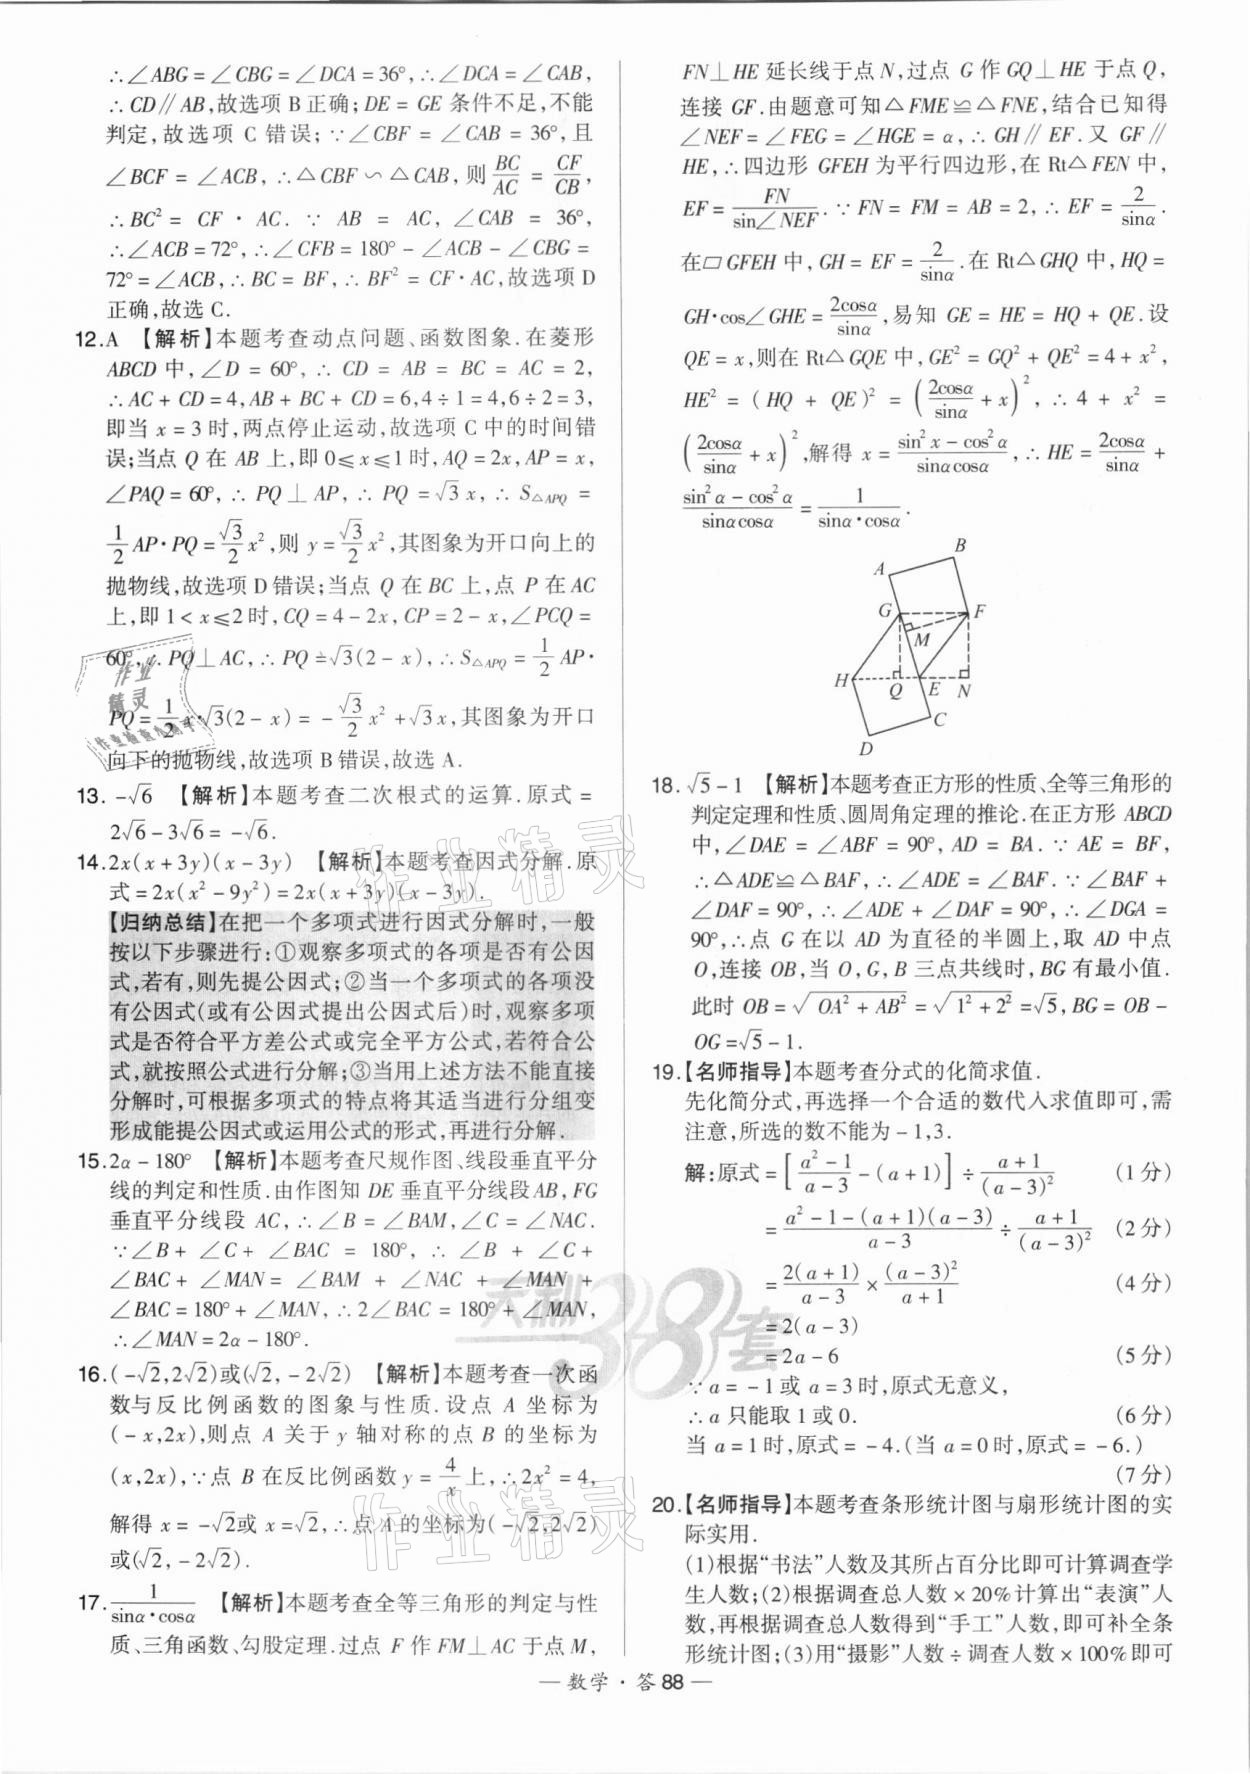 ∴∠ABG=∠CBG=∠DCA=36°,∴∠DCA=∠CAB,
∴CD∥AB,故选项B正确;DE=GE条件不足,不能
判定,故选项C错误;∵∠CBF=∠CAB=36°,且
∠BCF=∠ACB,∴△CBF∽△CAB,则BC/AC=CF/CB,
∴BC²=CF·AC.∵AB=AC,∠CAB=36°,
∴∠ACB=72°,∴∠CFB=180°-∠ACB-∠CBG=
72°=∠ACB,∴BC=BF,∴BF²=CF·AC,故选项D
正确,故选C.
12.A 【解析】本题考查动点问题、函数图象.在菱形
ABCD中,∠D=60°,∴CD=AB=BC=AC=2,
∴AC+CD=4,AB+BC+CD=6,4÷1=4,6÷2=3,
即当x=3时,两点停止运动,故选项C中的时间错
误;当点Q在AB上,即0⩽x⩽1时,AQ=2x,AP=x,
∠PAQ=60°,∴PQ⊥AP,∴PQ=√3x,∴S△APQ=
1/2AP·PQ=√3/2x²,则y=√3/2x²,其图象为开口向上的
抛物线,故选项D错误;当点Q在BC上,点P在AC
上,即1<x⩽2时,CQ=4-2x,CP=2-x,∠PCQ=
60°,∴PQ⊥AC,∴PQ=√3(2-x),∴S△APQ=1/2AP·
PQ=1/2x·√3(2-x)=-√3/2x²+√3x,其图象为开口
向下的抛物线,故选项B错误,故选A.
13.-√6 【解析】本题考查二次根式的运算.原式=
2√6-3√6=-√6.
14.2x(x+3y)(x-3y) 【解析】本题考查因式分解.原
式=2x(x²-9y²)=2x(x+3y)(x-3y).
【归纳总结】在把一个多项式进行因式分解时,一般
按以下步骤进行:①观察多项式的各项是否有公因
式,若有,则先提公因式;②当一个多项式的各项没
有公因式(或有公因式提出公因式后)时,观察多项
式是否符合平方差公式或完全平方公式,若符合公
式,就按照公式进行分解;③当用上述方法不能直接
分解时,可根据多项式的特点将其适当进行分组变
形成能提公因式或运用公式的形式,再进行分解.
15.2α-180° 【解析】本题考查尺规作图、线段垂直平分
线的判定和性质.由作图知DE垂直平分线段AB,FG
垂直平分线段AC,∴∠B=∠BAM,∠C=∠NAC.
∵∠B+∠C+∠BAC=180°,∴∠B+∠C+
∠BAC+∠MAN=∠BAM+∠NAC+∠MAN+
∠BAC=180°+∠MAN,∴2∠BAC=180°+∠MAN,
∴∠MAN=2α-180°.
16.(-√2,2√2)或(√2,-2√2) 【解析】本题考查一次函
数与反比例函数的图象与性质.设点A坐标为
(-x,2x),则点A关于y轴对称的点B的坐标为
(x,2x),∵点B在反比例函数y=4/x上,∴2x²=4,
解得x=-√2或x=√2,∴点A的坐标为(-√2,2√2)
或(√2,-2√2).
17.1/(sinα·cosα) 【解析】本题考查全等三角形的判定与性
质、三角函数、勾股定理.过点F作FM⊥AC于点M,
FN⊥HE延长线于点N,过点G作GQ⊥HE于点Q,
连接GF.由题意可知△FME≌△FNE,结合已知得
∠NEF=∠FEG=∠HGE=α,∴GH∥EF.又GF∥
HE,∴四边形GFEH为平行四边形,在Rt△FEN中,
EF=FN/sin∠NEF.∵FN=FM=AB=2,∴EF=2/sinα.
在▱GFEH中,GH=EF=2/sinα.在Rt△GHQ中,HQ=
GH·cos∠GHE=2cosα/sinα,易知GE=HE=HQ+QE.设
QE=x,则在Rt△GQE中,GE²=GQ²+QE²=4+x²,
HE²=(HQ+QE)²=(2cosα/sinα+x)²,∴4+x²=
(2cosα/sinα+x)²,解得x=(sin²x-cos²α)/(sinαcosα),∴HE=2cosα/sinα+
(sin²α-cos²α)/(sinαcosα)=1/(sinα·cosα).
B
A
G
F
M
H
Q
E
N
C
D
18.√5-1 【解析】本题考查正方形的性质、全等三角形的
判定定理和性质、圆周角定理的推论.在正方形ABCD
中,∠DAE=∠ABF=90°,AD=BA.∵AE=BF,
∴△ADE≌△BAF,∴∠ADE=∠BAF.∵∠BAF+
∠DAF=90°,∴∠ADE+∠DAF=90°,∴∠DGA=
90°,∴点G在以AD为直径的半圆上,取AD中点
O,连接OB,当O,G,B三点共线时,BG有最小值.
此时OB=√(OA²+AB²)=√(1²+2²)=√5,BG=OB-
OG=√5-1.
19.【名师指导】本题考查分式的化简求值.
先化简分式,再选择一个合适的数代入求值即可,需
注意,所选的数不能为-1,3.
解:原式=[(a²-1)/(a-3)-(a+1)]÷(a+1)/(a-3)² (1分)
=(a²-1-(a+1)(a-3))/(a-3)÷(a+1)/(a-3)² (2分)
=2(a+1)/(a-3)×(a-3)²/(a+1) (4分)
=2(a-3)
=2a-6 (5分)
∵a=-1或a=3时,原式无意义,
∴a只能取1或0. (6分)
当a=1时,原式=-4.(当a=0时,原式=-6.)
(7分)
20.【名师指导】本题考查条形统计图与扇形统计图的实
际实用.
(1)根据“书法”人数及其所占百分比即可计算调查学
生人数;(2)根据调查总人数×20%计算出“表演”人
数,再根据调查总人数得到“手工”人数,即可补全条
形统计图;(3)用“摄影”人数÷调查人数×100%即可
— 数学·答88 —
作业精灵
天利38套
作业精灵
作业
精灵